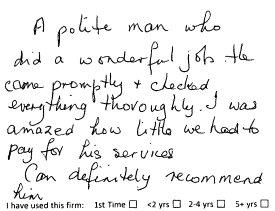 A polite man who
did a wonderful job He
came promptly + checked
everything thoroughly. I was
amazed how little we had to
pay for his services
Can definitely recommend
him
I have used this firm: 1st Time □ <2 yrs □ 2-4 yrs □ 5+ yrs □